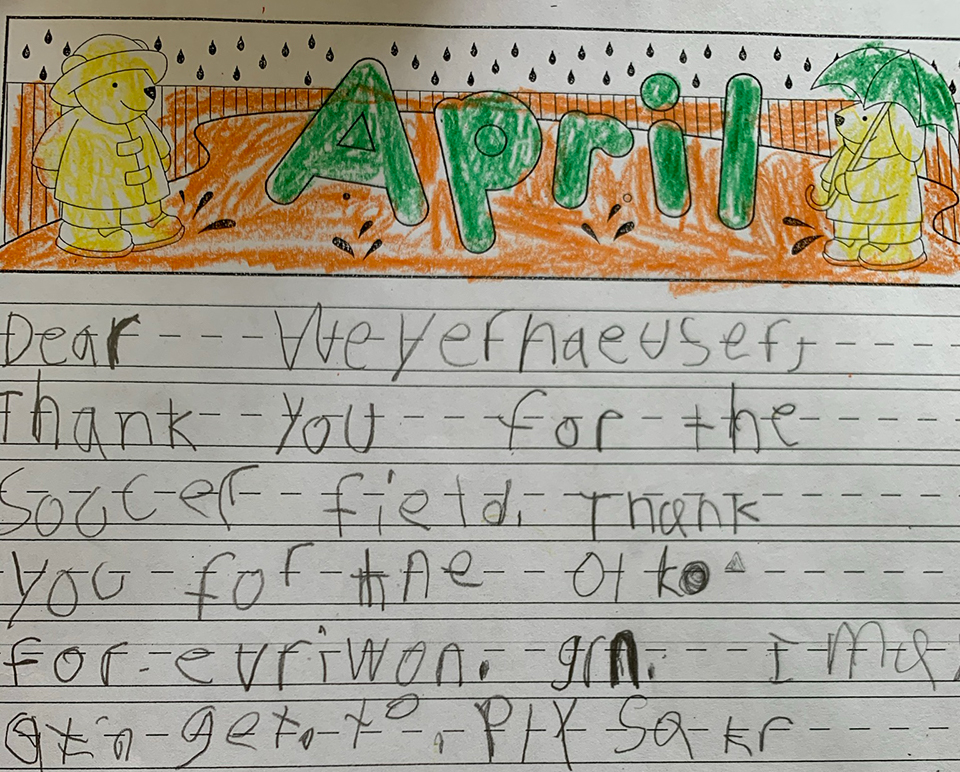 April
Dear Weyerhaeuser,
Thank you for the
Soccer field. Thank
you for the
for evriwon. I
get to Ply Sakr